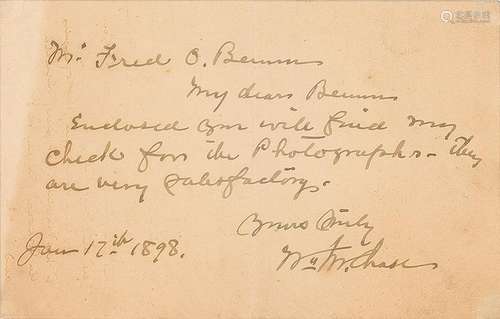 Mr. Fred O. Bemm
My dear Bemm
Enclosed you will find my
check for the Photographs - they
are very satisfactory.
Yours truly
Wm M. Chase
Jan 17th 1898.